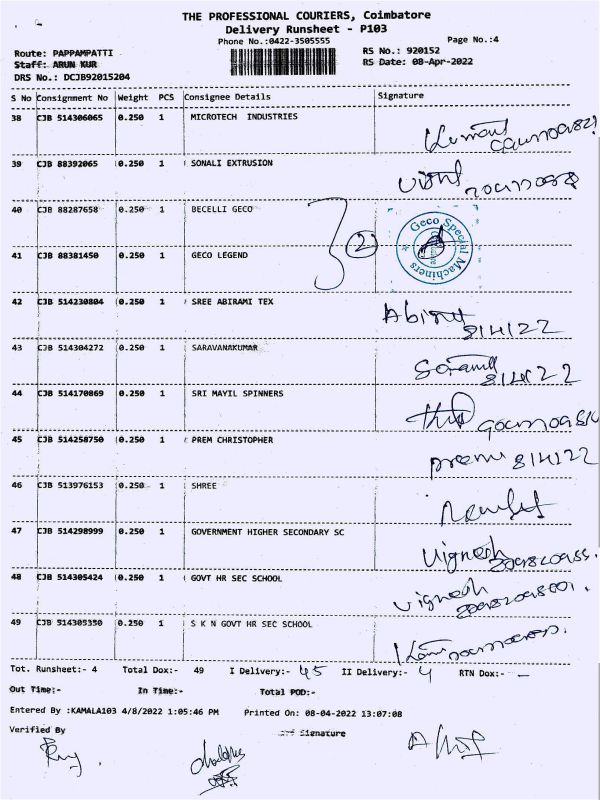 THE PROFESSIONAL COURIERS, Coimbatore
Delivery Runsheet - P103
Phone No.:0422-3505555
Page No.:4
Route: PAPPAMPATTI
RS No.: 920152
Staff: ARUN KUR
RS Date: 08-Apr-2022
DRS No.: DCJB92015204
S No Consignment No Weight PCS Consignee Details Signature
38 CJB 514306065 0.250 1 MICROTECH INDUSTRIES
39 CJB 88392065 0.250 1 SONALI EXTRUSION
40 CJB 88287658 0.250 1 BECELLI GECO
2
Geco Special Machiners
41 CJB 88381450 0.250 1 GECO LEGEND
42 CJB 514230804 0.250 1 SREE ABIRAMI TEX
8/4/22
43 CJB 514304272 0.250 1 SARAVANAKUMAR
8/4/22
44 CJB 514170869 0.250 1 SRI MAYIL SPINNERS
45 CJB 514258750 0.250 1 PREM CHRISTOPHER
8/4/22
46 CJB 513976153 0.250 1 SHREE
47 CJB 514298999 0.250 1 GOVERNMENT HIGHER SECONDARY SC
Vignesh
48 CJB 514305424 0.250 1 GOVT HR SEC SCHOOL
Vignesh
49 CJB 514305350 0.250 1 S K N GOVT HR SEC SCHOOL
Tot. Runsheet:- 4 Total Dox:- 49 I Delivery:- 45 II Delivery:- 4 RTN Dox:- -
Out Time:- In Time:- Total POD:-
Entered By :KAMALA103 4/8/2022 1:05:46 PM Printed On: 08-04-2022 13:07:08
Verified By
Signature